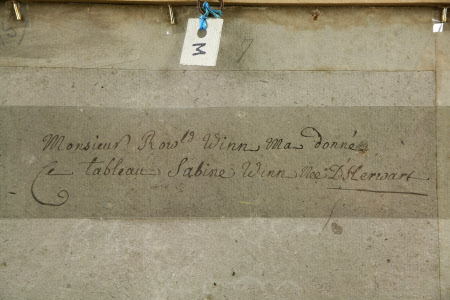 M
7
Monsieur Row.ld Winn ma donné
Ce tableau Sabine Winn Née D'Herwart